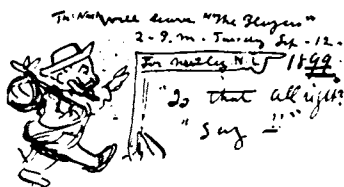 will leave "The Players"
2 - P. M. - Tuesday Sep - 12 -
For N.J. 1899
"Is that all right?
"Say —!!"